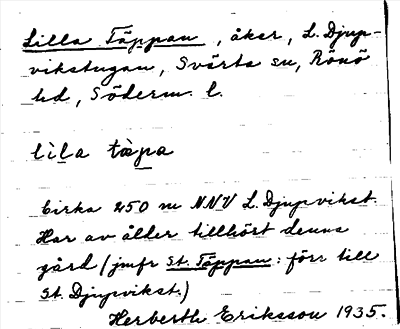 Lilla Täppan, åker, L. Djup-
vikstugan, Svärta sn, Rönö
hd, Söderm. l.
lìla tàpa
Cirka 250 m NNV L. Djupvikst.
Har av ålder tillhört denna
gård (jmfr St. Täppan: förr till
St. Djupvikst.)
Herberth Eriksson 1935.